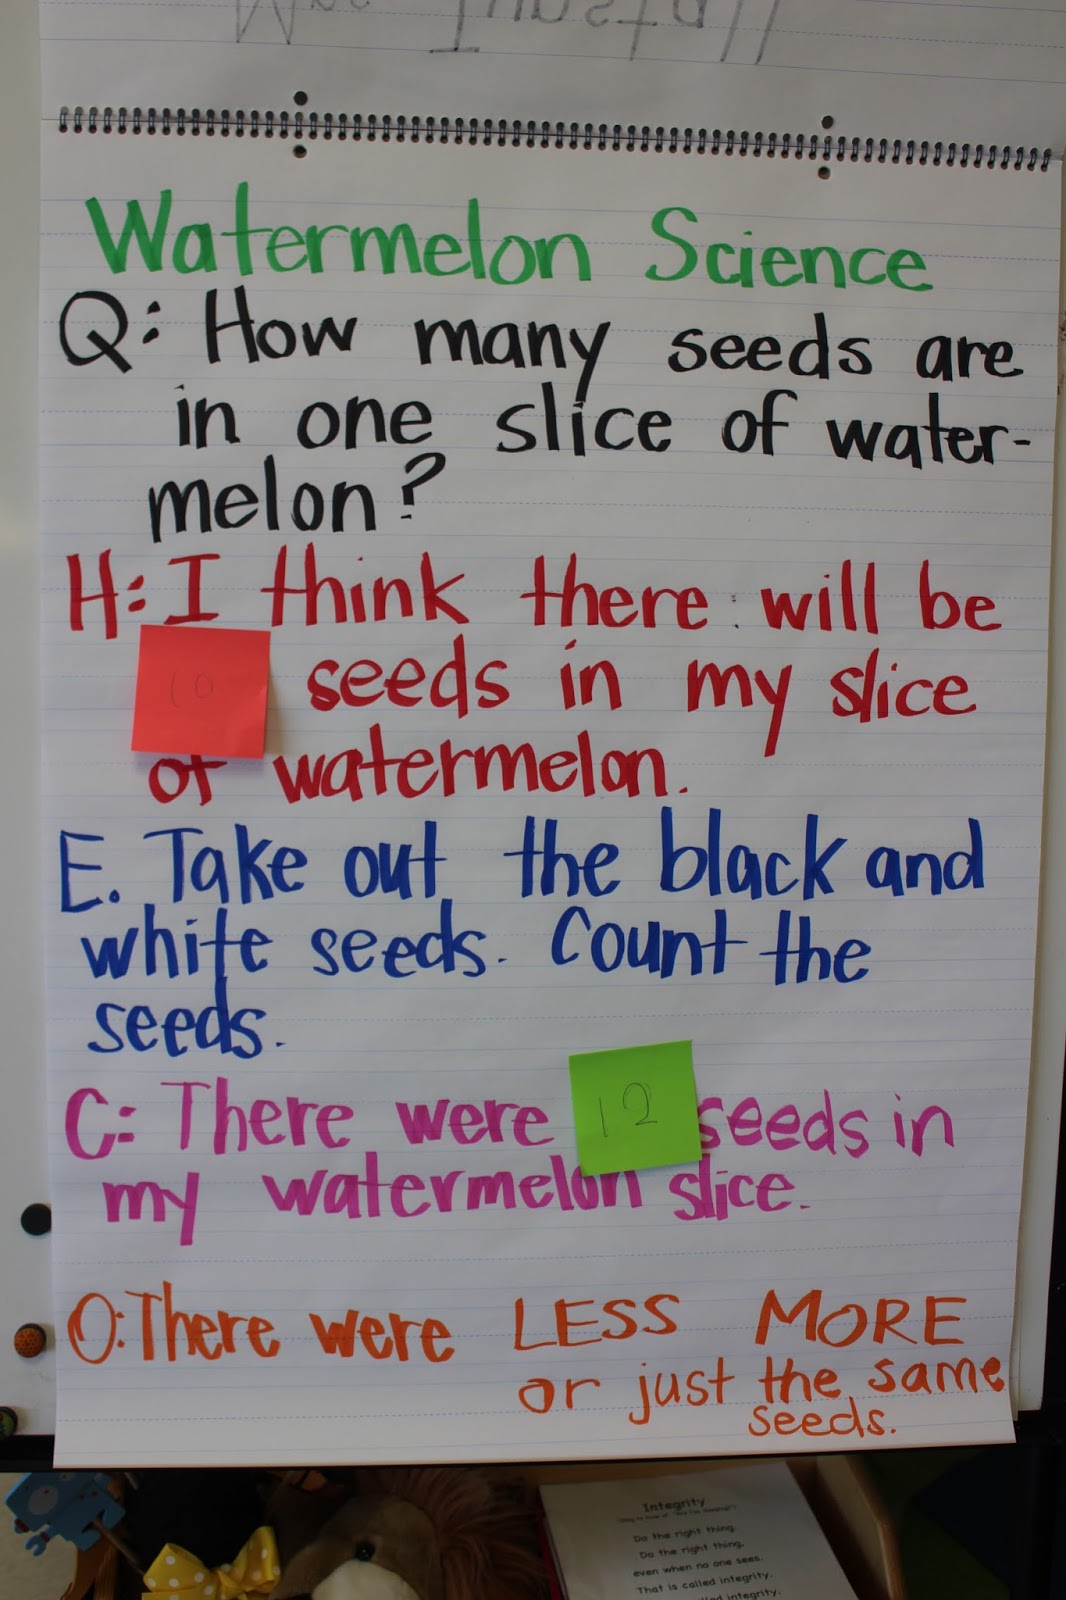 Watermelon Science
Q: How many seeds are
in one slice of water-
melon?
H: I think there will be
10 seeds in my slice
of watermelon.
E. Take out the black and
white seeds. Count the
seeds.
C: There were 12 seeds in
my watermelon slice.
O: There were LESS MORE
or just the same
seeds.
Integrity
Do the right thing,
Do the right thing,
even when no one sees.
That is called integrity.
called integrity.